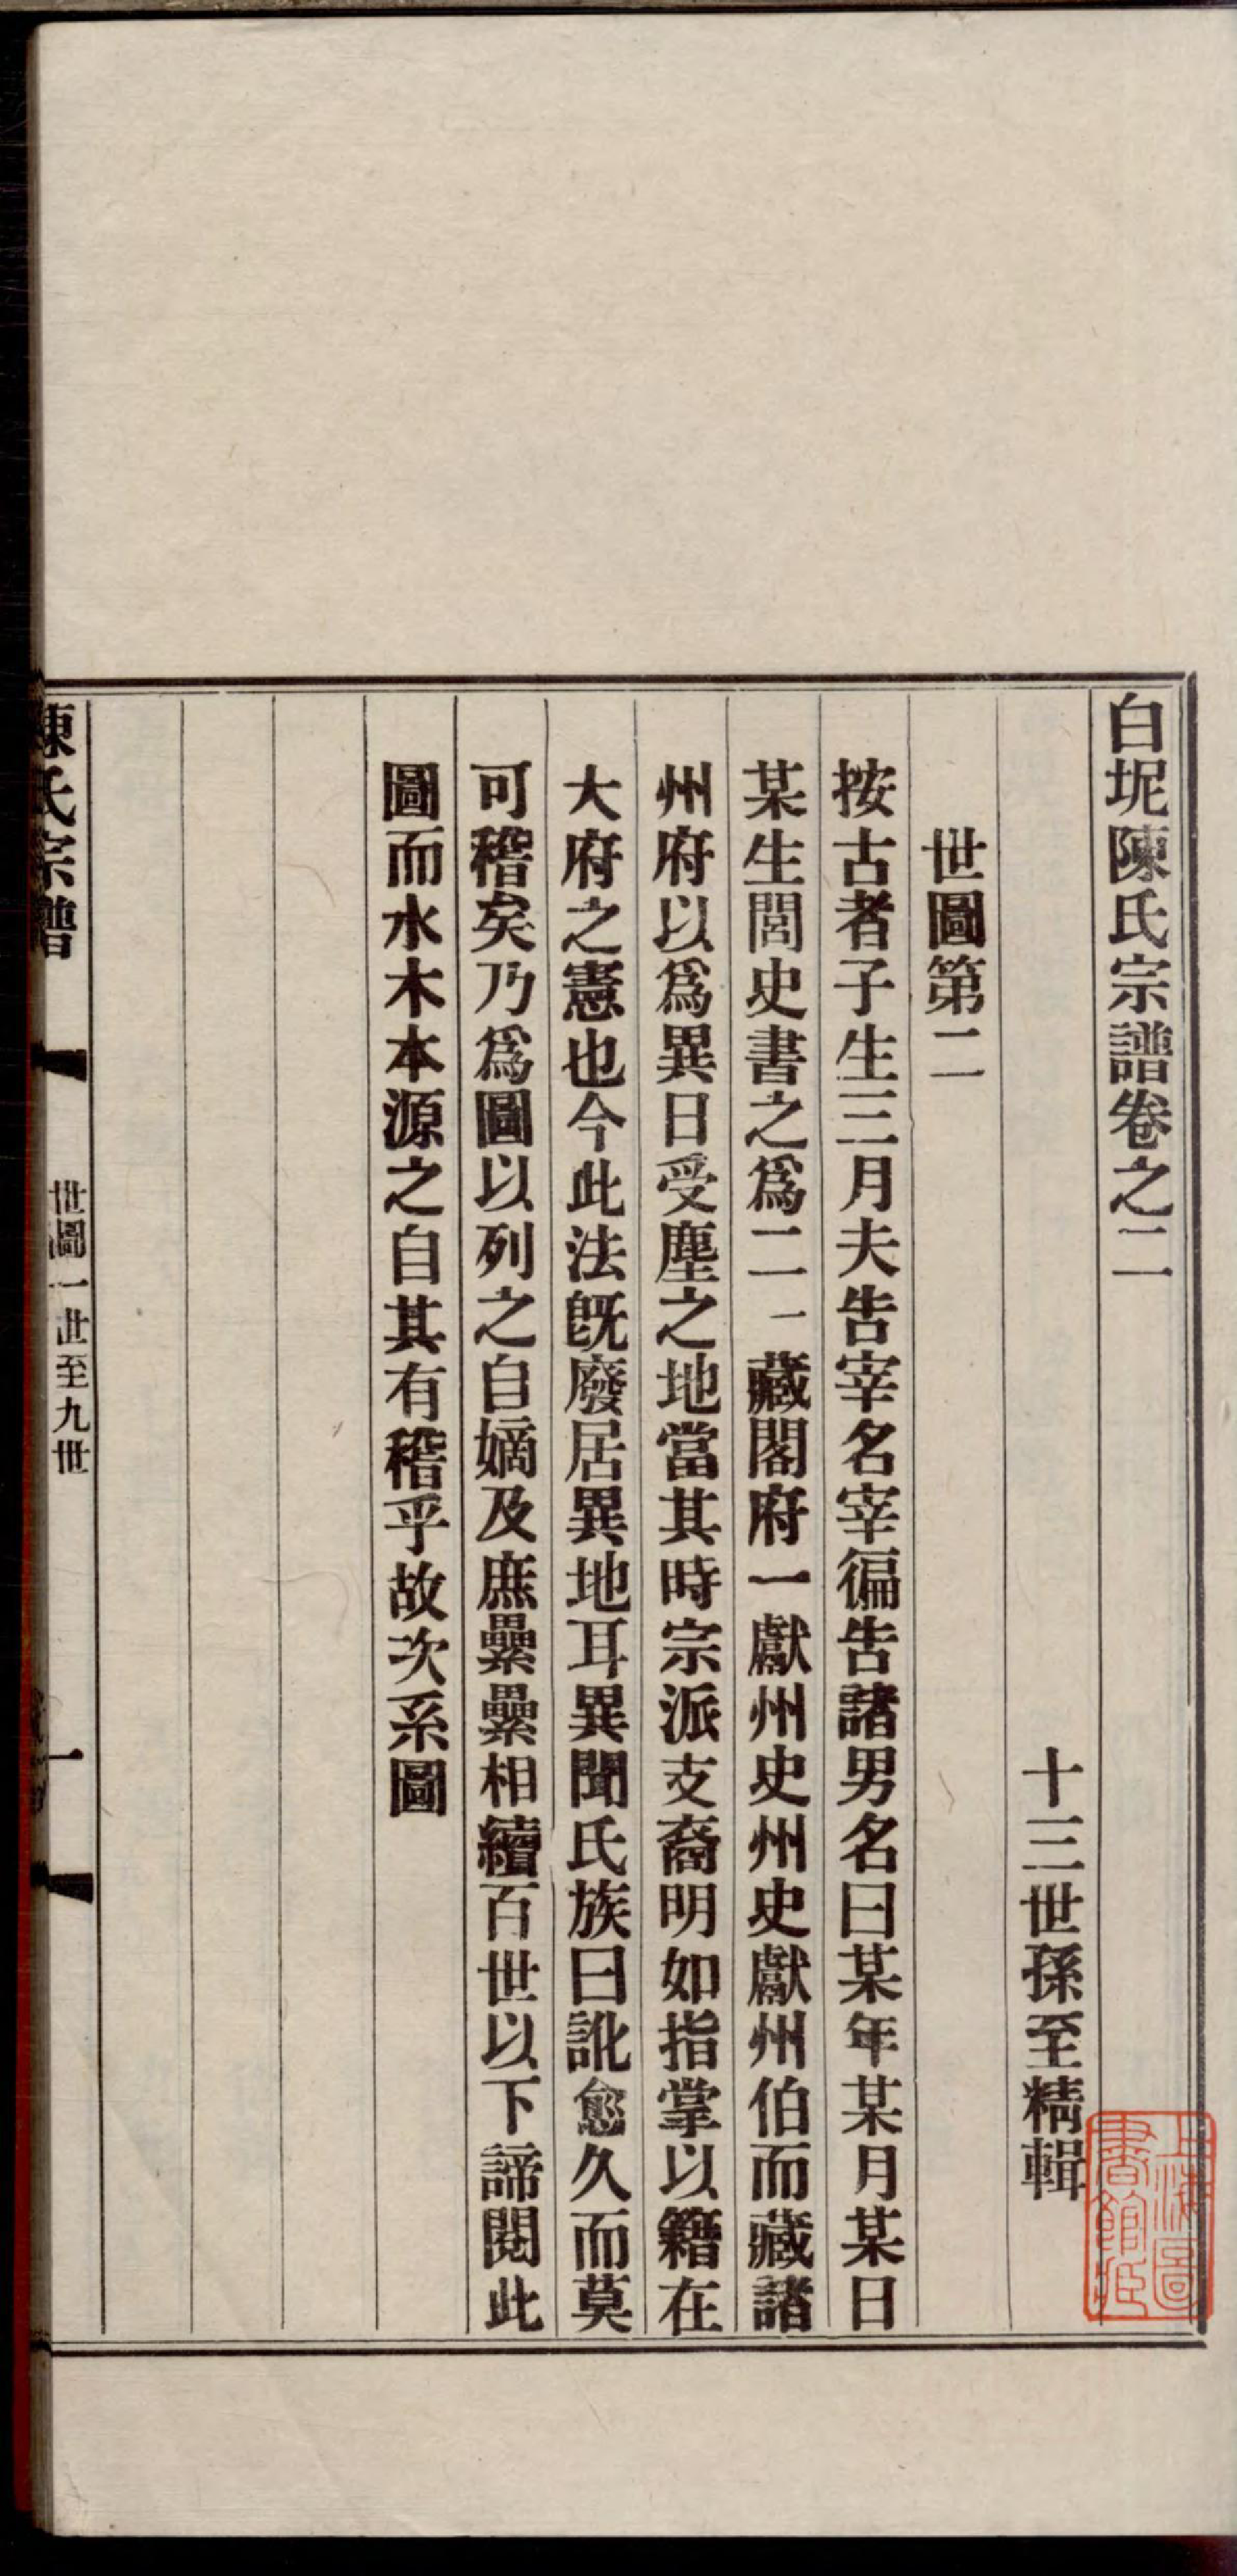 白坭陳氏宗譜卷之二
十三世孫至精輯
世圖第二
按古者子生三月夫告宰名宰徧告諸男名曰某年某月某日
某生閭史書之爲二一藏閭府一獻州史州史獻州伯而藏諸
州府以爲異日受塵之地當其時宗派支裔明如指掌以籍在
大府之憲也今此法旣廢居異地耳異聞氏族曰訛愈久而莫
可稽矣乃爲圖以列之自嫡及庶纍纍相續百世以下諦閱此
圖而水木本源之自其有稽乎故次系圖
陳氏宗譜
世圖一世至九世
一
上海圖書館藏